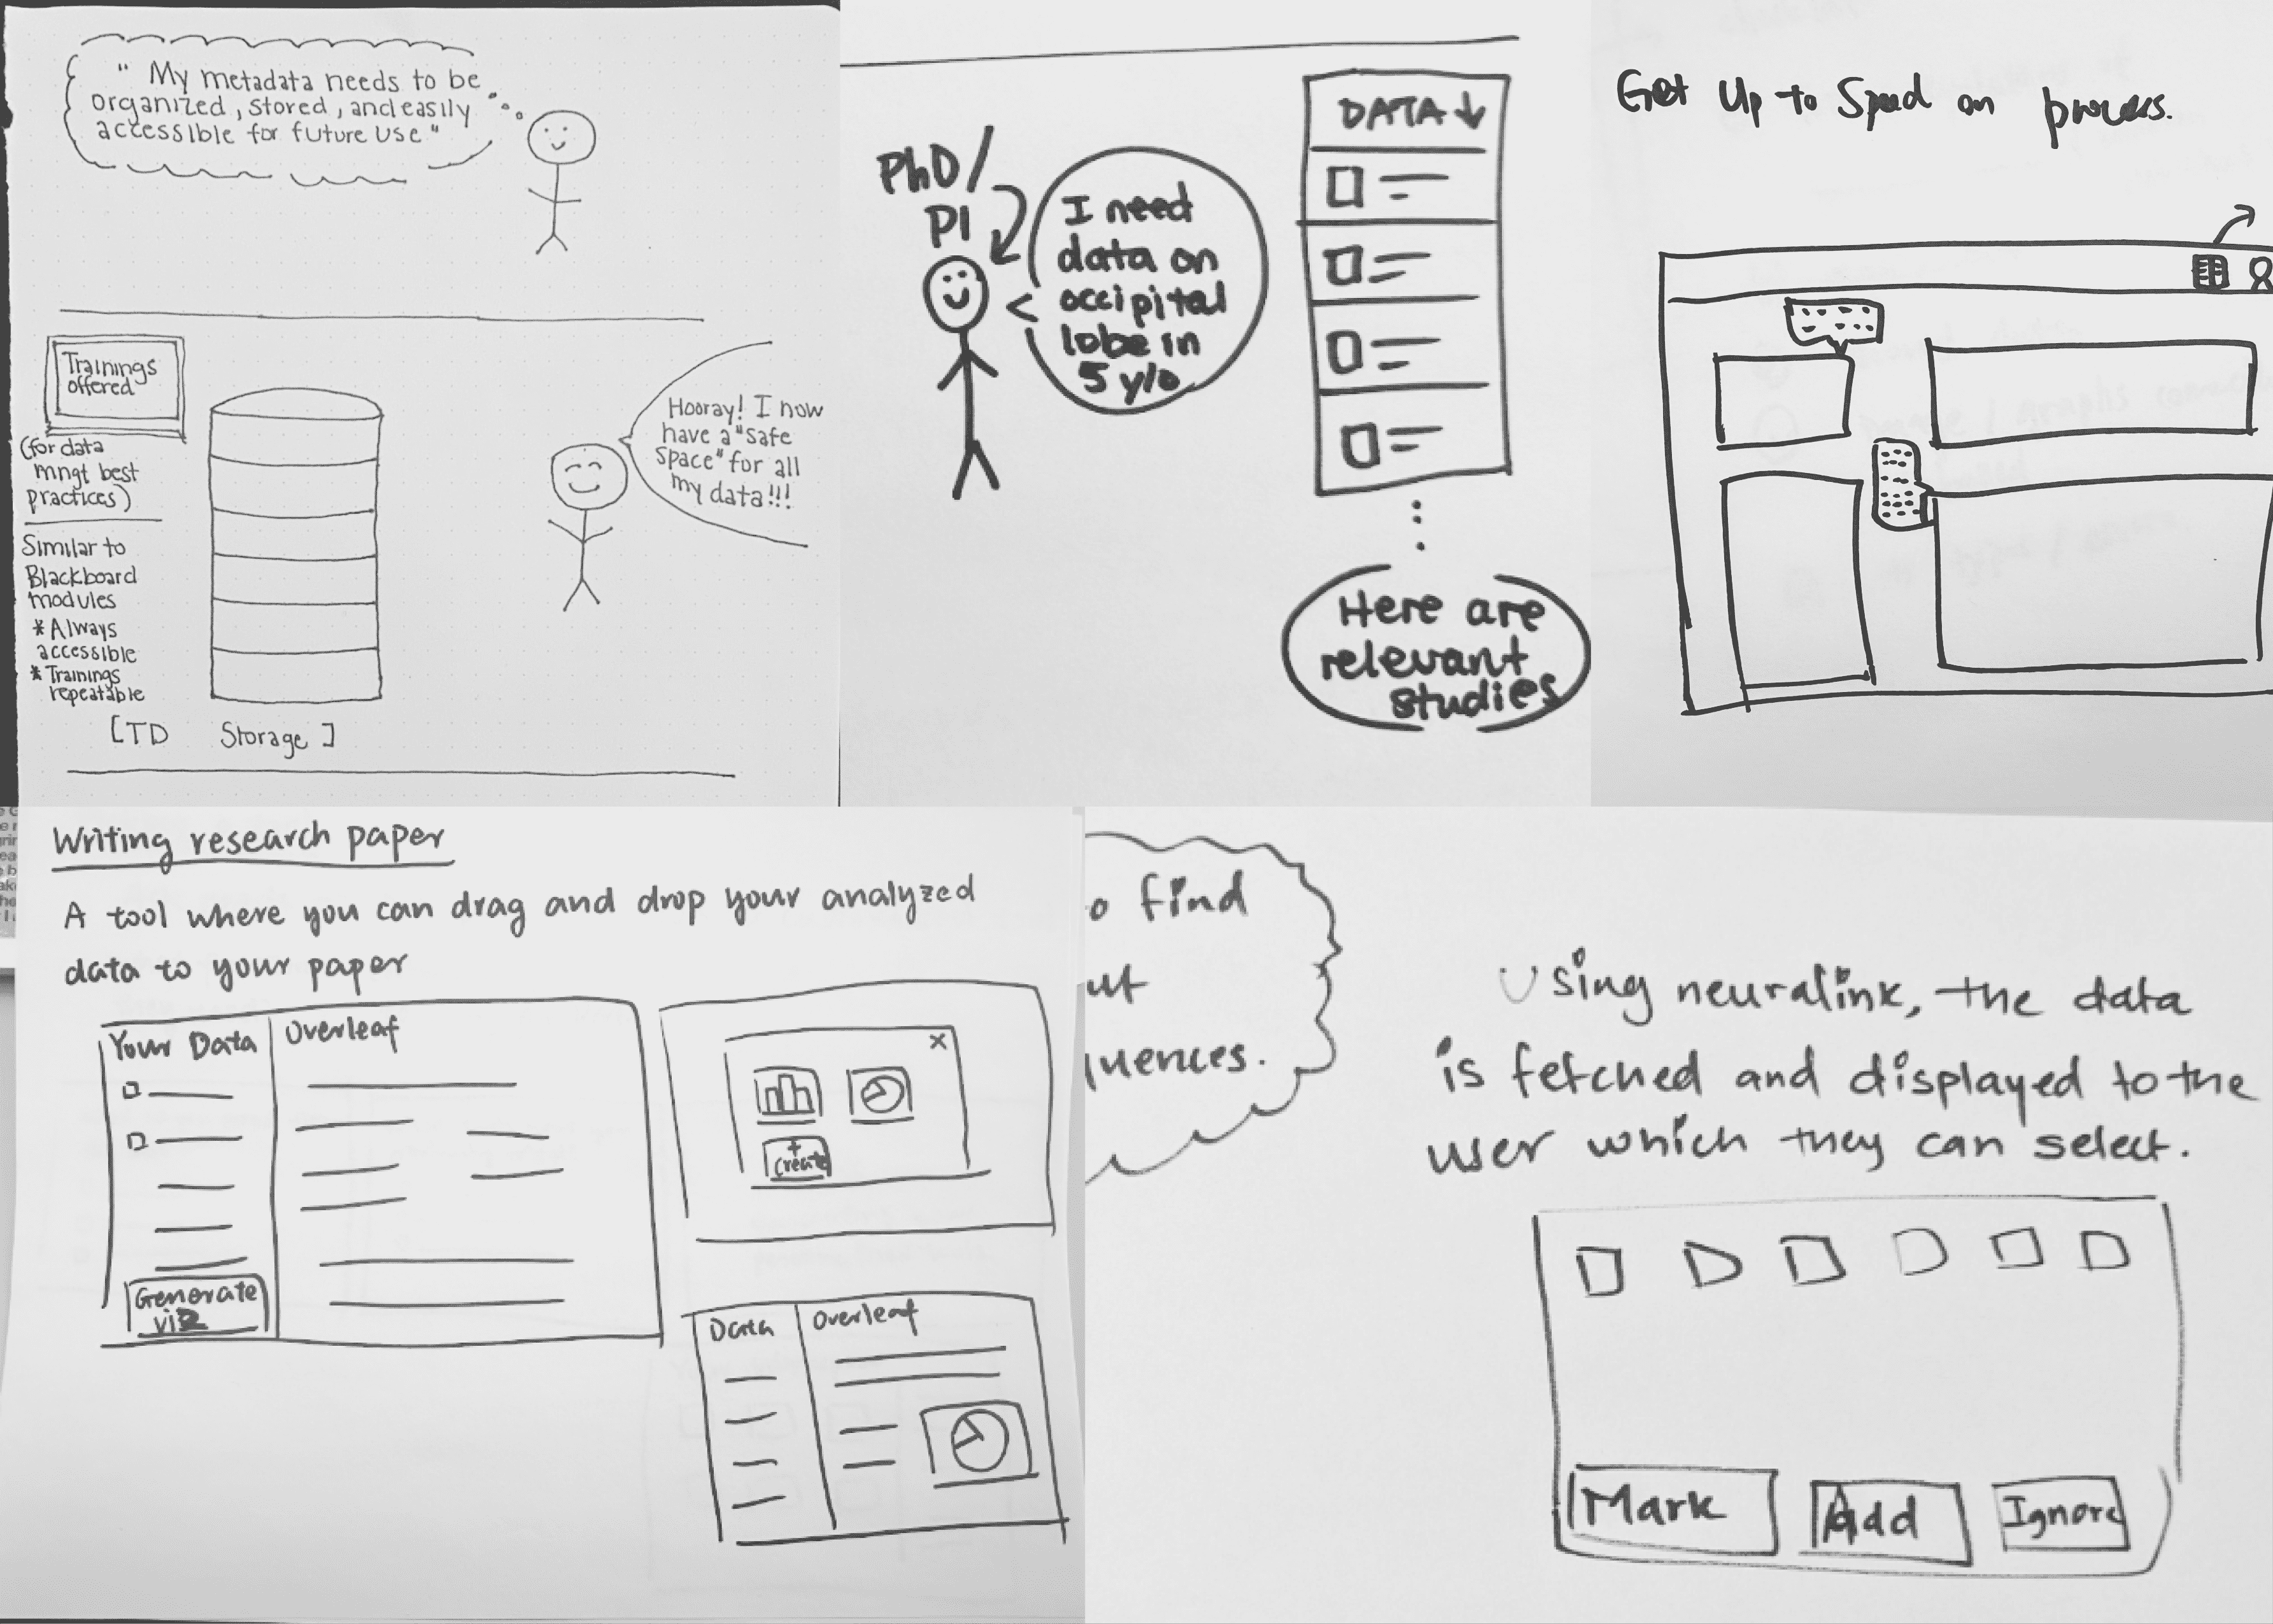 " My metadata needs to be
organized, stored, and easily
accessible for future use"
Trainings
offered
(for data
mngt best
practices)
Similar to
Blackboard
modules
* Always
accessible
* Trainings
repeatable
[TD Storage]
Hooray! I now
have a "safe
space" for all
my data!!!
PhD/
PI
I need
data on
occipital
lobe in
5 y/o
DATA ↓
Here are
relevant
studies
Get Up to Speed on process.
Writing research paper
A tool where you can drag and drop your analyzed
data to your paper
Your Data
Overleaf
Generate
viz
+
Create
Data
Overleaf
o find
ut
uences.
Using neuralink, the data
is fetched and displayed to the
user which they can select.
Mark
Add
Ignore